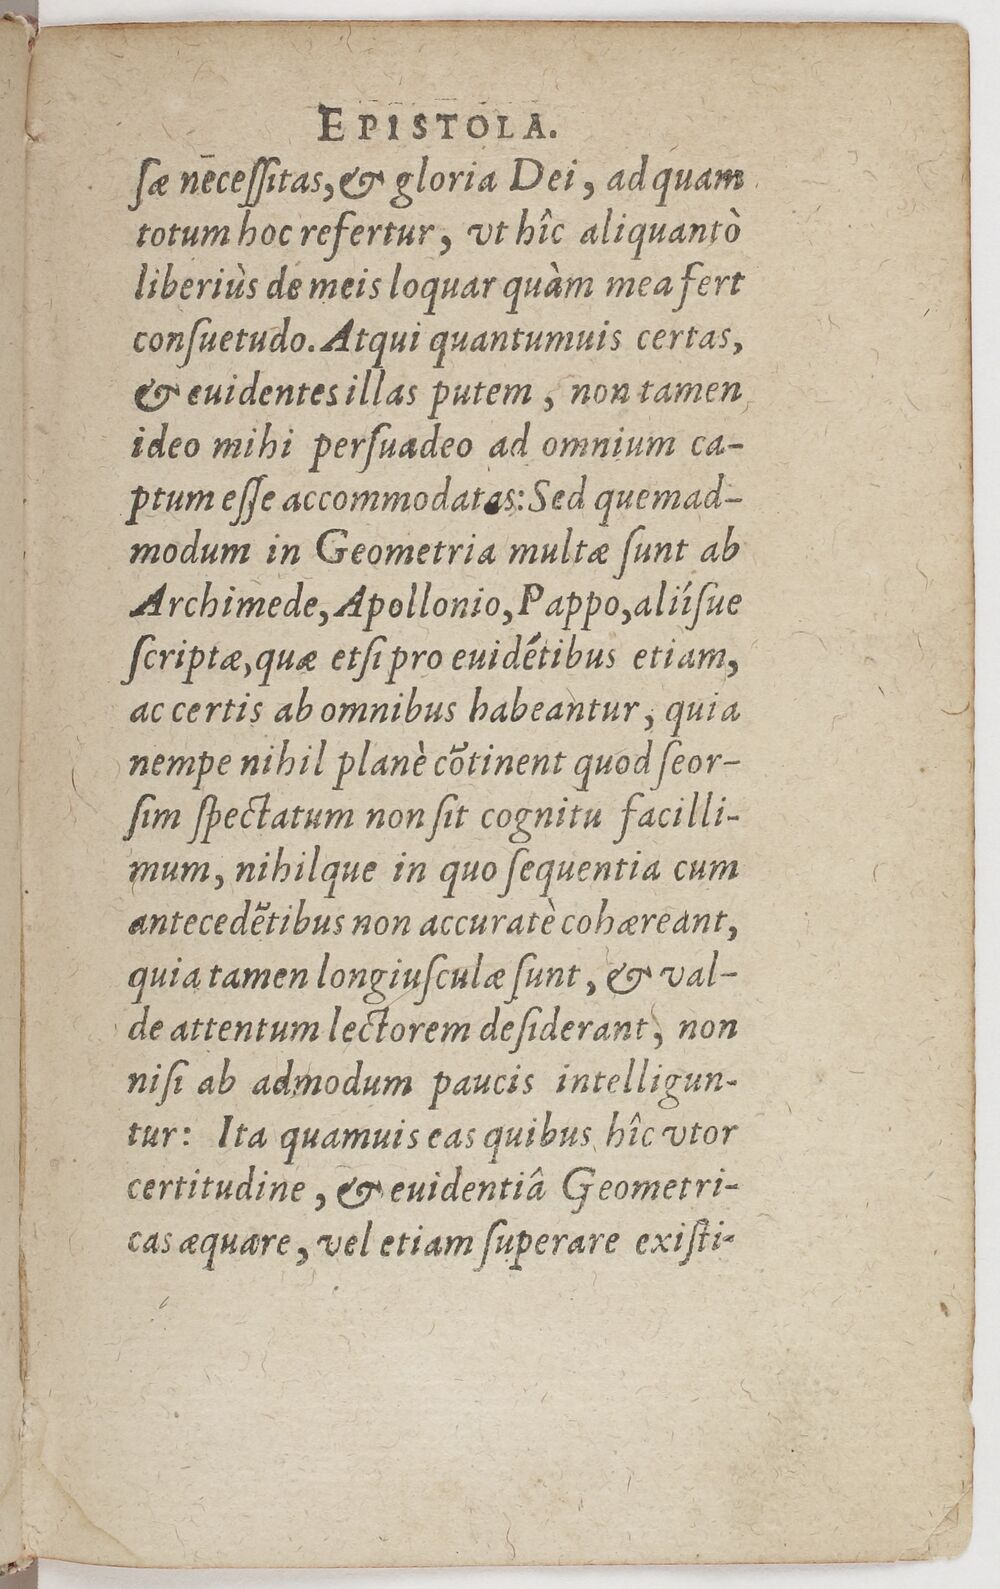 EPISTOLA.
ſæ nēceſſitas, & gloria Dei, ad quam
totum hoc refertur, vt hîc aliquantò
liberiùs de meis loquar quàm mea fert
conſuetudo. Atqui quantumuis certas,
& euidentes illas putem, non tamen
ideo mihi perſuadeo ad omnium ca-
ptum eſſe accommodatas: Sed quemad-
modum in Geometria multæ ſunt ab
Archimede, Apollonio, Pappo, aliíſue
ſcriptæ, quæ etſi pro euidẽtibus etiam,
ac certis ab omnibus habeantur, quia
nempe nihil planè cõtinent quod ſeor-
ſim ſpectatum non ſit cognitu facilli-
mum, nihilque in quo ſequentia cum
antecedẽtibus non accuratè cohæreant,
quia tamen longiuſculæ ſunt, & val-
de attentum lectorem deſiderant, non
niſi ab admodum paucis intelligun-
tur: Ita quamuis eas quibus hîc vtor
certitudine, & euidentiâ Geometri-
cas æquare, vel etiam ſuperare exiſti-